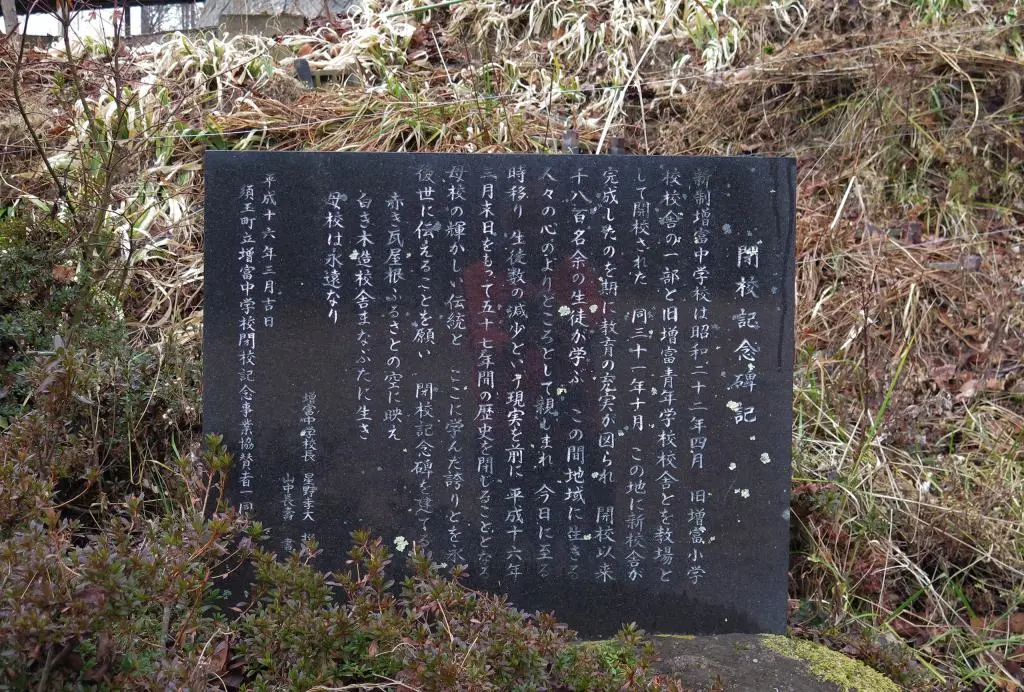 閉校記念碑記
新制増富中学校は昭和二十二年四月 旧増富小学
校校舎の一部と旧増富青年学校校舎とを教場と
して開校された 同三十一年十月 この地に新校舎が
完成したのを期に教育の充実が図られ 開校以来
千八百名余の生徒が学ぶ この間地域に生きる
人々の心のよりどころとして親しまれ 今日に至る
時移り 生徒数の減少という現実を前に 平成十六年
三月末日をもって五十七年間の歴史を閉じることとなる
母校の輝かしい伝統と ここに学んだ誇りとを永
後世に伝えることを願い 閉校記念碑を建てる
赤き瓦屋根ふるさとの空に映え
白き木造校舎まなぶたに生き
母校は永遠なり
増富中学校長 星野幸夫
山中長寿 書
平成十六年三月吉日
須玉町立増富中学校閉校記念事業協賛者一同